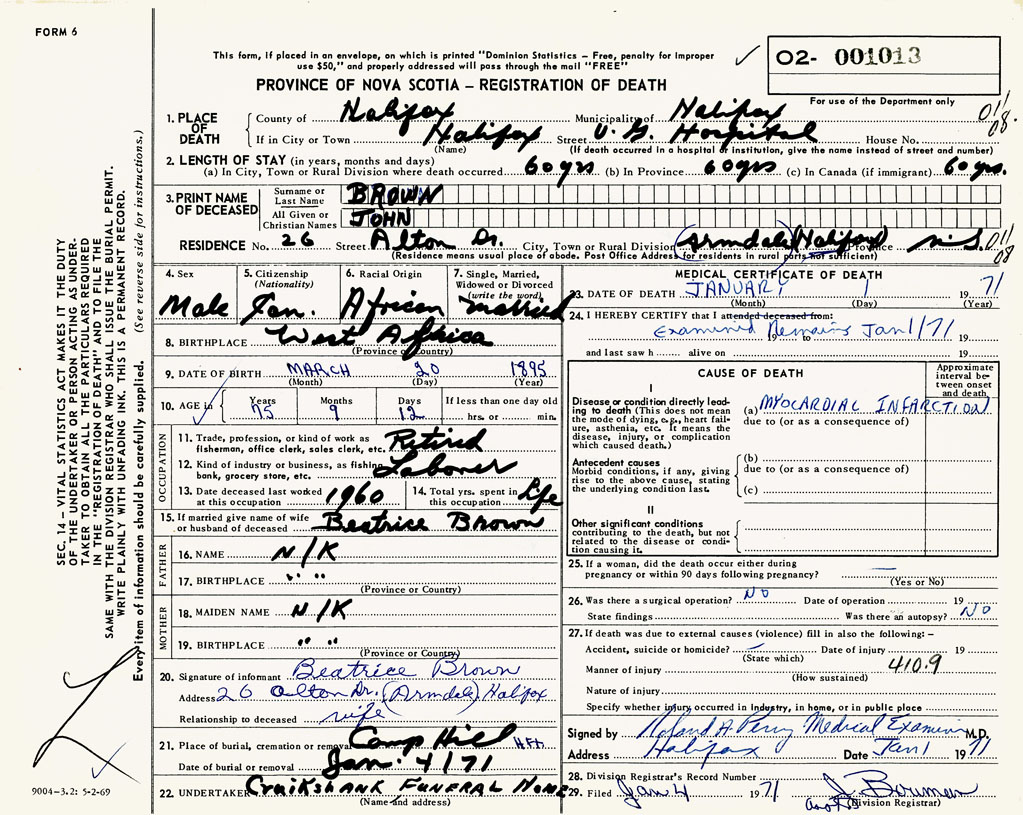 FORM 6
This form, if placed in an envelope, on which is printed "Dominion Statistics – Free, penalty for improper
use $50," and properly addressed will pass through the mail "FREE"
✓
O2- 001013
For use of the Department only
PROVINCE OF NOVA SCOTIA – REGISTRATION OF DEATH
1. PLACE OF DEATH
County of Halifax Municipality of Halifax 011
If in City or Town Halifax Street V. G. Hospital House No. 08.
(Name) (If death occurred in a hospital or institution, give the name instead of street and number)
2. LENGTH OF STAY (in years, months and days)
(a) In City, Town or Rural Division where death occurred 60 yrs (b) In Province 60 yrs (c) In Canada (if immigrant) 60 yrs.
3. PRINT NAME OF DECEASED
Surname or Last Name BROWN
All Given or Christian Names JOHN
RESIDENCE No. 26 Street Alton Dr. City, Town or Rural Division Armdale (Halifax) Province N.S. 011
(Residence means usual place of abode. Post Office Address for residents in rural parts not sufficient) 08
4. Sex Male
5. Citizenship (Nationality) Can.
6. Racial Origin African
7. Single, Married, Widowed or Divorced (write the word) Married
8. BIRTHPLACE West Africa
(Province or Country)
9. DATE OF BIRTH MARCH 20 1895
(Month) (Day) (Year)
10. AGE in Years 75 Months 9 Days 12 If less than one day old
hrs. or min.
OCCUPATION
11. Trade, profession, or kind of work as Retired
fisherman, office clerk, sales clerk, etc.
12. Kind of industry or business, as fishing, Laborer
bank, grocery store, etc.
13. Date deceased last worked at this occupation 1960
14. Total yrs. spent in this occupation Life
15. If married give name of wife or husband of deceased Beatrice Brown
FATHER
16. NAME N/K
17. BIRTHPLACE " "
(Province or Country)
MOTHER
18. MAIDEN NAME N/K
19. BIRTHPLACE " "
(Province or Country)
20. Signature of informant Beatrice Brown
Address 26 Alton Dr. (Armdale) Halifax
Relationship to deceased wife
21. Place of burial, cremation or removal Camp Hill Hfx
Date of burial or removal Jan. 4/71
22. UNDERTAKER Cruikshank Funeral Home
(Name and address)
MEDICAL CERTIFICATE OF DEATH
23. DATE OF DEATH JANUARY 1 1971
(Month) (Day) (Year)
24. I HEREBY CERTIFY that I attended deceased from:
Examined Remains Jan 1/71
19 to 19
and last saw h alive on 19
CAUSE OF DEATH
Approximate interval between onset and death
I
Disease or condition directly leading to death (This does not mean the mode of dying, e.g., heart failure, asthenia, etc. It means the disease, injury, or complication which caused death.)
(a) MYOCARDIAL INFARCTION
due to (or as a consequence of)
Antecedent causes
Morbid conditions, if any, giving rise to the above cause, stating the underlying condition last.
(b)
due to (or as a consequence of)
(c)
II
Other significant conditions contributing to the death, but not related to the disease or condition causing it.
25. If a woman, did the death occur either during
pregnancy or within 90 days following pregnancy? —
(Yes or No)
26. Was there a surgical operation? NO Date of operation 19
State findings Was there an autopsy? NO
27. If death was due to external causes (violence) fill in also the following: –
Accident, suicide or homicide? — Date of injury 19
(State which)
Manner of injury 410.9
(How sustained)
Nature of injury
Specify whether injury occurred in Industry, in home, or in public place
Signed by Roland A. Perry Medical Examiner M.D.
Address Halifax Date Jan 1 1971
28. Division Registrar's Record Number
29. Filed Jan 4 1971 J. Bowman
(Division Registrar)
SEC. 14 – VITAL STATISTICS ACT MAKES IT THE DUTY
OF THE UNDERTAKER OR PERSON ACTING AS UNDER-
TAKER TO OBTAIN ALL THE PARTICULARS REQUIRED
IN THE "REGISTRATION OF DEATH" AND TO FILE THE
SAME WITH THE DIVISION REGISTRAR WHO SHALL ISSUE THE BURIAL PERMIT.
WRITE PLAINLY WITH UNFADING INK. THIS IS A PERMANENT RECORD.
Every item of information should be carefully supplied. (See reverse side for instructions.)
9004-3.2: 5-2-69